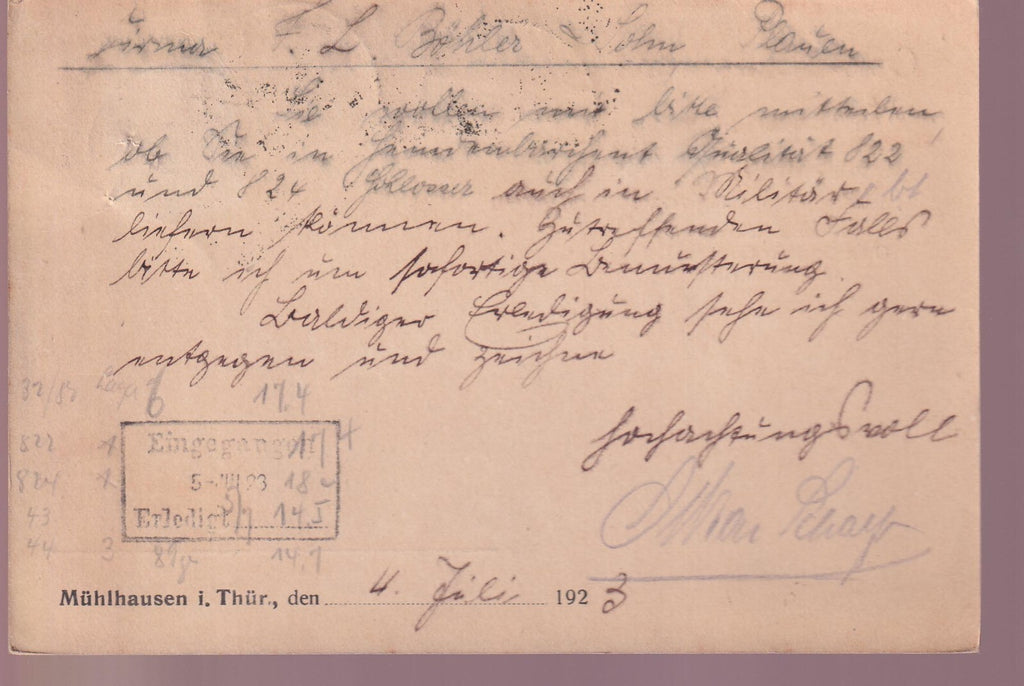 Firma F. L. Böhler & Sohn Plauen
Sie wollen mir bitte mitteilen,
ob Sie in Hemdenbarchent Qualität 822
und 824 auch in Militär
liefern können. Zutreffenden Falls
bitte ich um sofortige Bemusterung.
Baldiger Erledigung sehe ich gern
entgegen und zeichne
Hochachtungsvoll
17.4
Eingegangen
822
5. 23 18
824
Erledigt 14.
43
44 3 14.
Mühlhausen i. Thür., den 4. Juli 1923